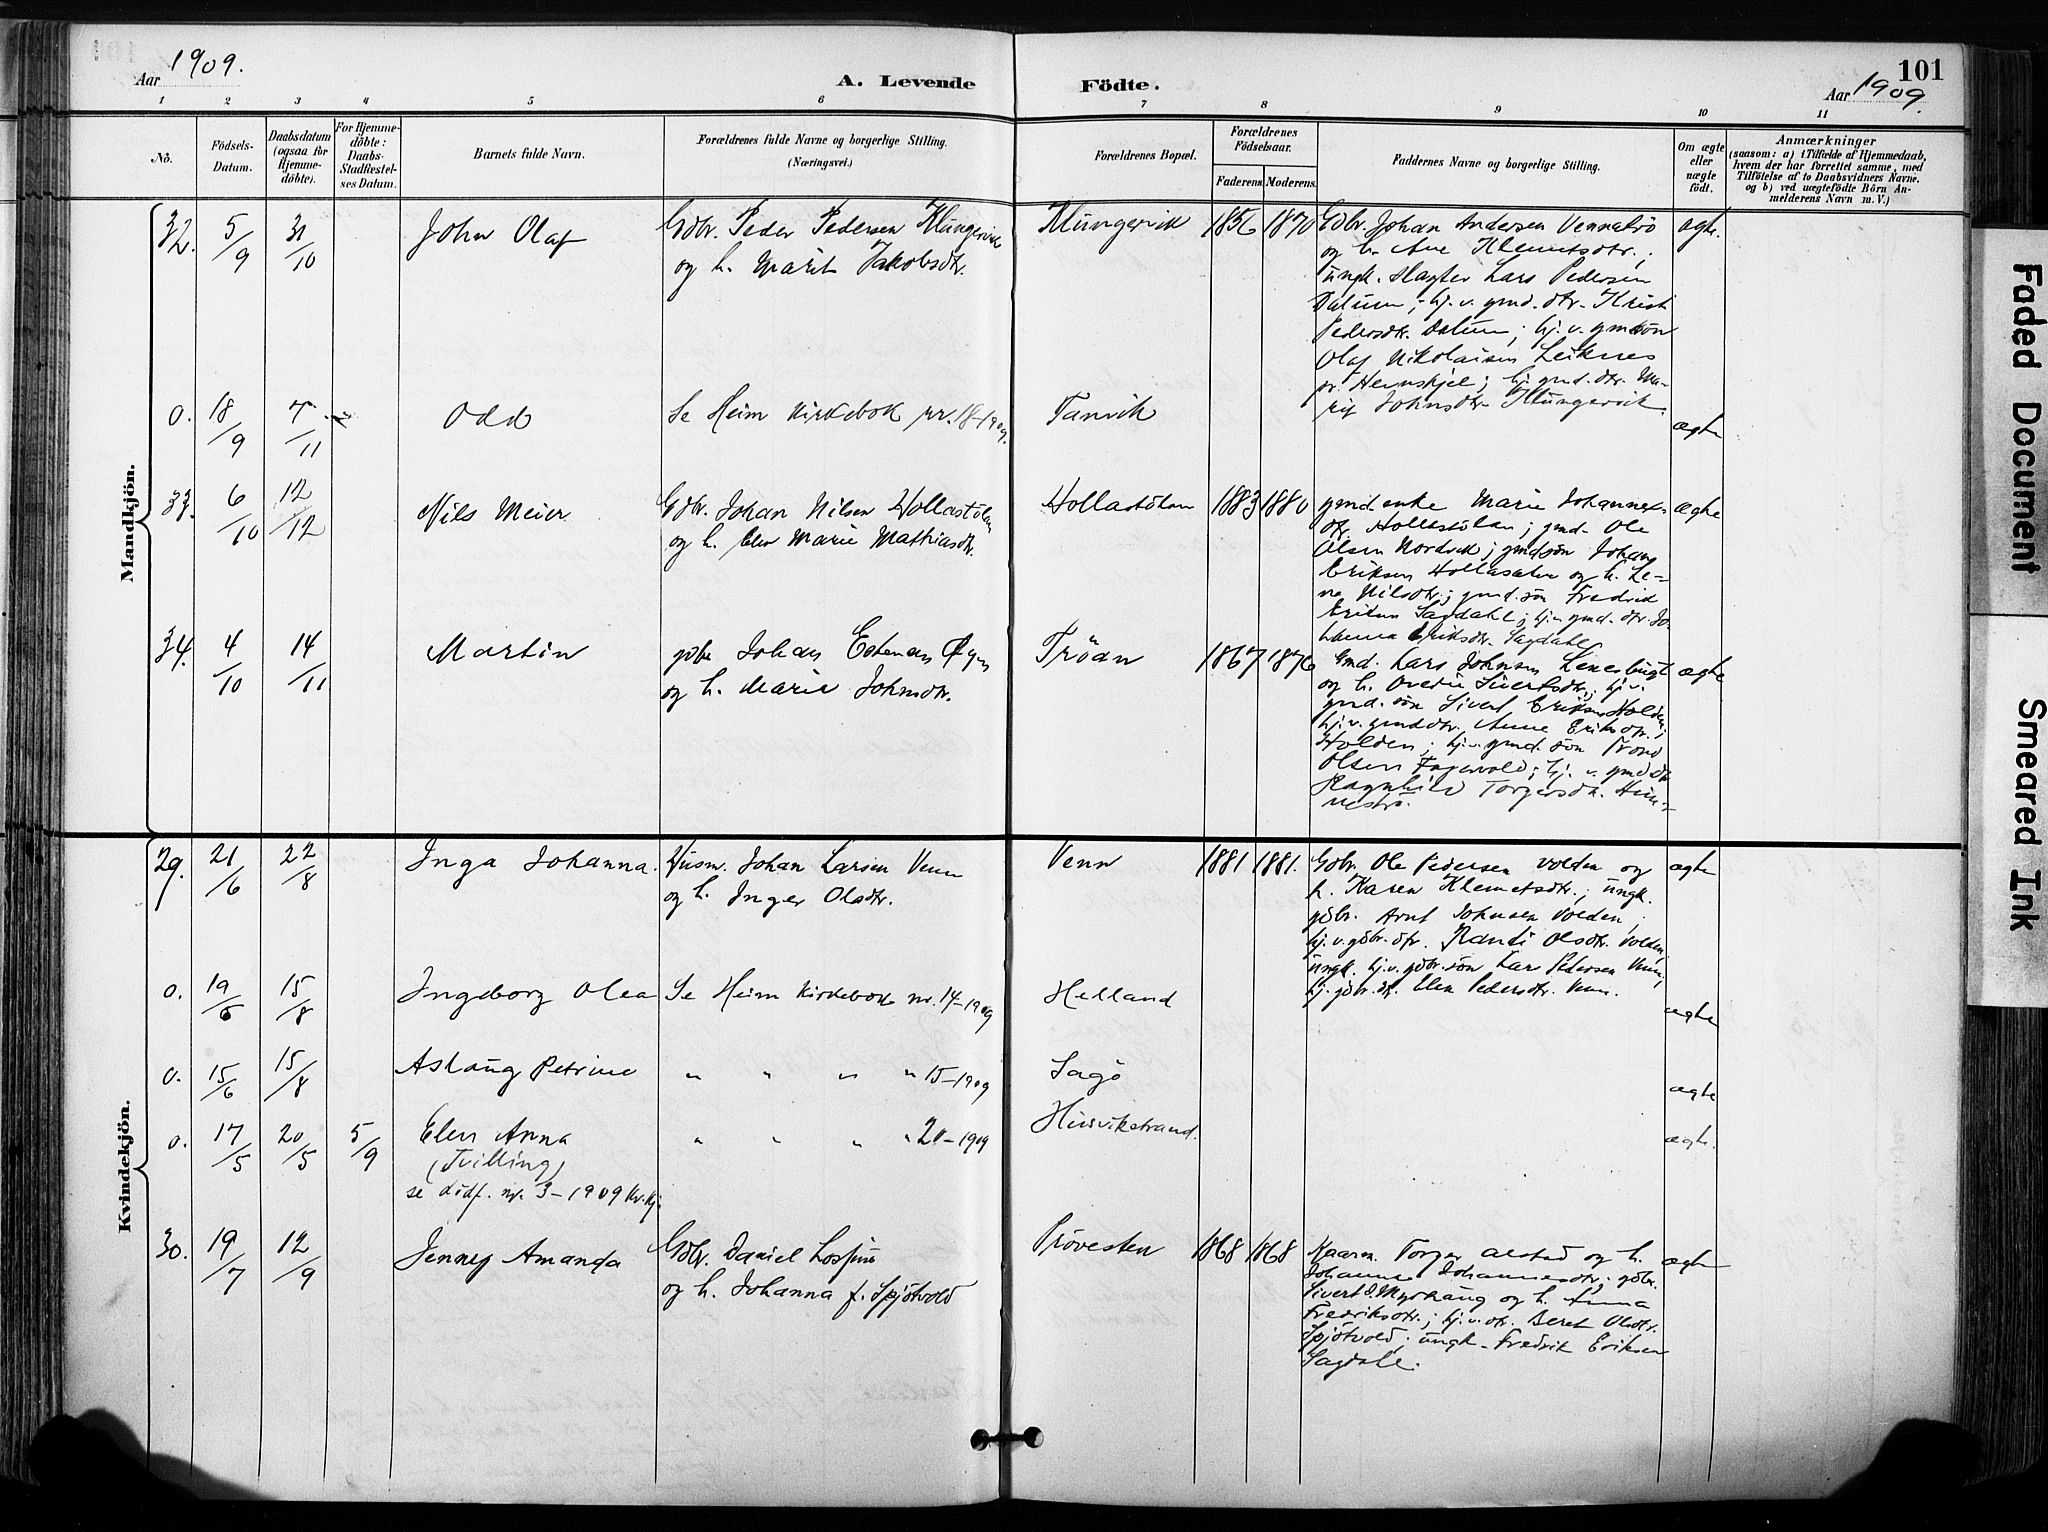 Aar 1909.
A. Levende
Födte.
101
Aar 1909.
1 2 3 4 5 6 7 8 9 10 11
No.
Födsels-
Datum.
Daabsdatum
(ogsaa for
Hjemme-
döbte).
For Hjemme-
döbte:
Daabs-
Stadfæstel-
ses Datum.
Barnets fulde Navn.
Forældrenes fulde Navne og borgerlige Stilling.
(Næringsvei.)
Forældrenes Bopæl.
Forældrenes
Födselsaar.
Faderens. Moderens.
Faddernes Navne og borgerlige Stilling.
Om ægte
eller
uægte
födt.
Anmærkninger
(saasom: a) i Tilfælde af Hjemmedaab,
hvem der har forrettet samme, med
Tilföielse af to Daabsvidners Navne,
og b) ved uægtefödte Börn An-
melderens Navn m.V.)
Mandkjön.
32. 5/9 31/10 John Olaf
Gdbr. Peder Pedersen Klungervik
og h. Marit Jakobsdtr.
Klungervik 1856 1870
Gdbr. Johan Andersen Vennatrö
og h. Ane Klemetsdtr.;
ungk. slagter Lars Pedersen
Dalum; hj. v. gmd. dtr. Kristi
Pedersdtr. Dalum; hj. v. gmdsön
Olaf Nikolaisen Leiknes
pr. Hemnskjel; hj. gmd. dtr. Ma-
rit Johnsdtr. Klungervik.
ægte.
0. 18/9 7/11 Odd
Se Heim Kirkebok nr. 18-1909.
Tanvik
ægte
33. 6/10 12/12 Nils Meier
Gdbr. Johan Nilsen Hollastölan
og h. Elen Marie Mathiasdtr.
Hollastölan 1883 1880
gmd. enke Marie Johannes-
dtr. Hollastölan; gmd. Ole
Olsen Nordvik; gmdsön Johan
Eriksen Hollasælen og h. Le-
na Nilsdtr.; gmd. sön Fredrik
Eriksen Sagdahl; hj. v. gmd. dtr. Jo-
hanna Eriksdtr. Sagdahl.
ægte
34. 4/10 14/11 Martin
gdbr Johan Estensen Öyen
og h. Marie Johnsdtr.
Tröan 1867 1876
Gmd. Lars Johnsen Lenesbugt
og h. Ovedie Sivertsdtr.; hj. v.
gmd. sön Sivert Eriksen Holden;
hj. v. gmd dtr. Anne Eriksdtr.
Holden; hj. v. gmd. sön Trond
Olsen Fagervold; hj. v. gmd dtr
Ragnhild Torgersdtr.
ægte
Kvindekjön.
29. 21/6 22/8 Inga Johanna.
Husm. Johan Larsen Venn
og h. Inger Olsdtr.
Venn 1881 1881.
Gdbr. Ole Pedersen Volden og
h. Karen Klemetsdtr.; ungk.
gdbr. Arnt Johnsen Volden;
hj. v. gdbr. dtr. Randi Olsdtr. Volden,
ungk. hj. v. gdbr. sön Lars Pedersen Venn,
hj. gdbr. dtr. Elen Pedersdtr. Venn.
ægte
0. 19/6 15/8 Ingeborg Olea
Se Heim Kirkebok nr. 14-1909
Helland
ægte
0. 15/6 15/8 Aslaug Petrine
" " " " 15-1909
Sagö
ægte
0. 17/5 20/5 5/9 Elen Anna
(Tvilling)
se dödf. nr. 3-1909 Kv.kj.
" " " " 20-1909
Husvikstrand.
ægte.
30. 19/7 12/9 Jenny Amanda
Gdbr. Daniel Losjus
og h. Johanna f. Spjötvold
Prövesten 1868 1868
Kaarm. Torger Alstad og h.
Johanna Johannesdtr.; gdbr.
Sivert D. Myrhaug og h. Anna
Fredriksdtr.; hj. v. dtr. Beret Olsdtr.
Spjötvold; ungk. Fredrik Eriksen
Sagdale.
ægte
Faded Document
Smeared Ink